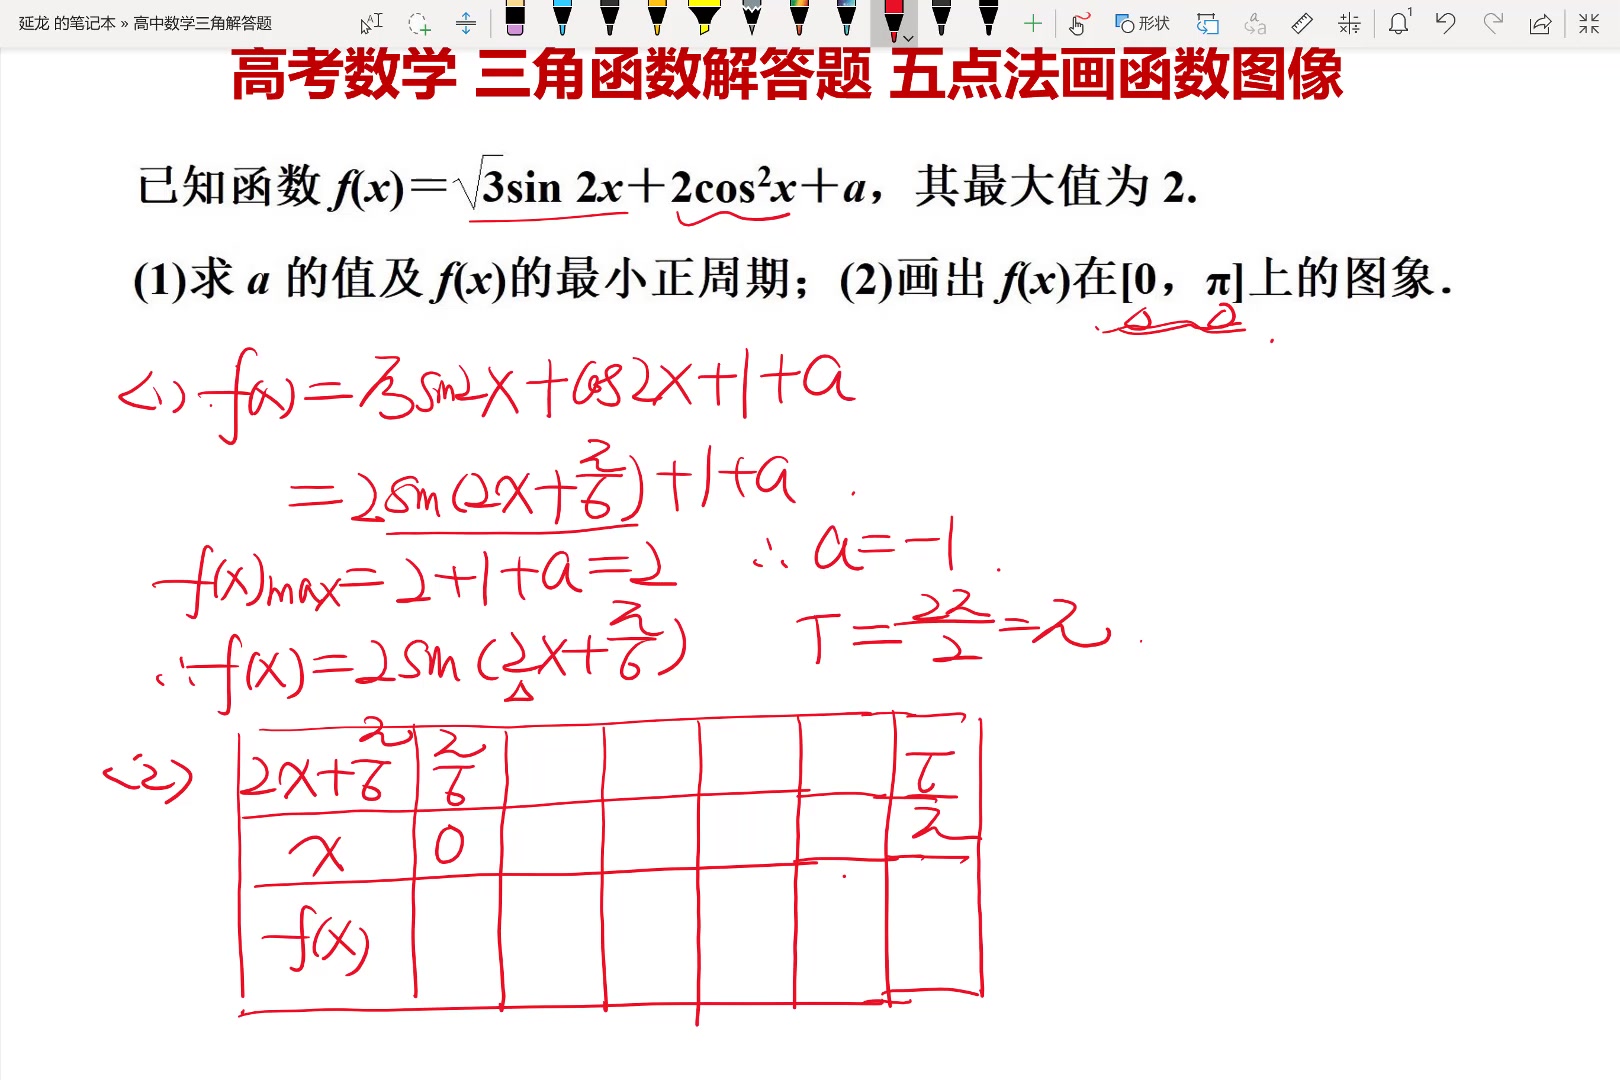 延龙 的笔记本 » 高中数学三角解答题
形状
1
高考数学 三角函数解答题 五点法画函数图像
已知函数 f(x)=√3sin 2x+2cos²x+a，其最大值为 2.
(1)求 a 的值及 f(x)的最小正周期；(2)画出 f(x)在[0，π]上的图象.
(1) f(x)=√3sin2x+cos2x+1+a
=2sin(2x+π/6)+1+a
f(x)max=2+1+a=2 ∴a=-1
∴f(x)=2sin(2x+π/6) T=2π/2=π
(2) 2x+π/6 π/6
x 0 π
f(x)